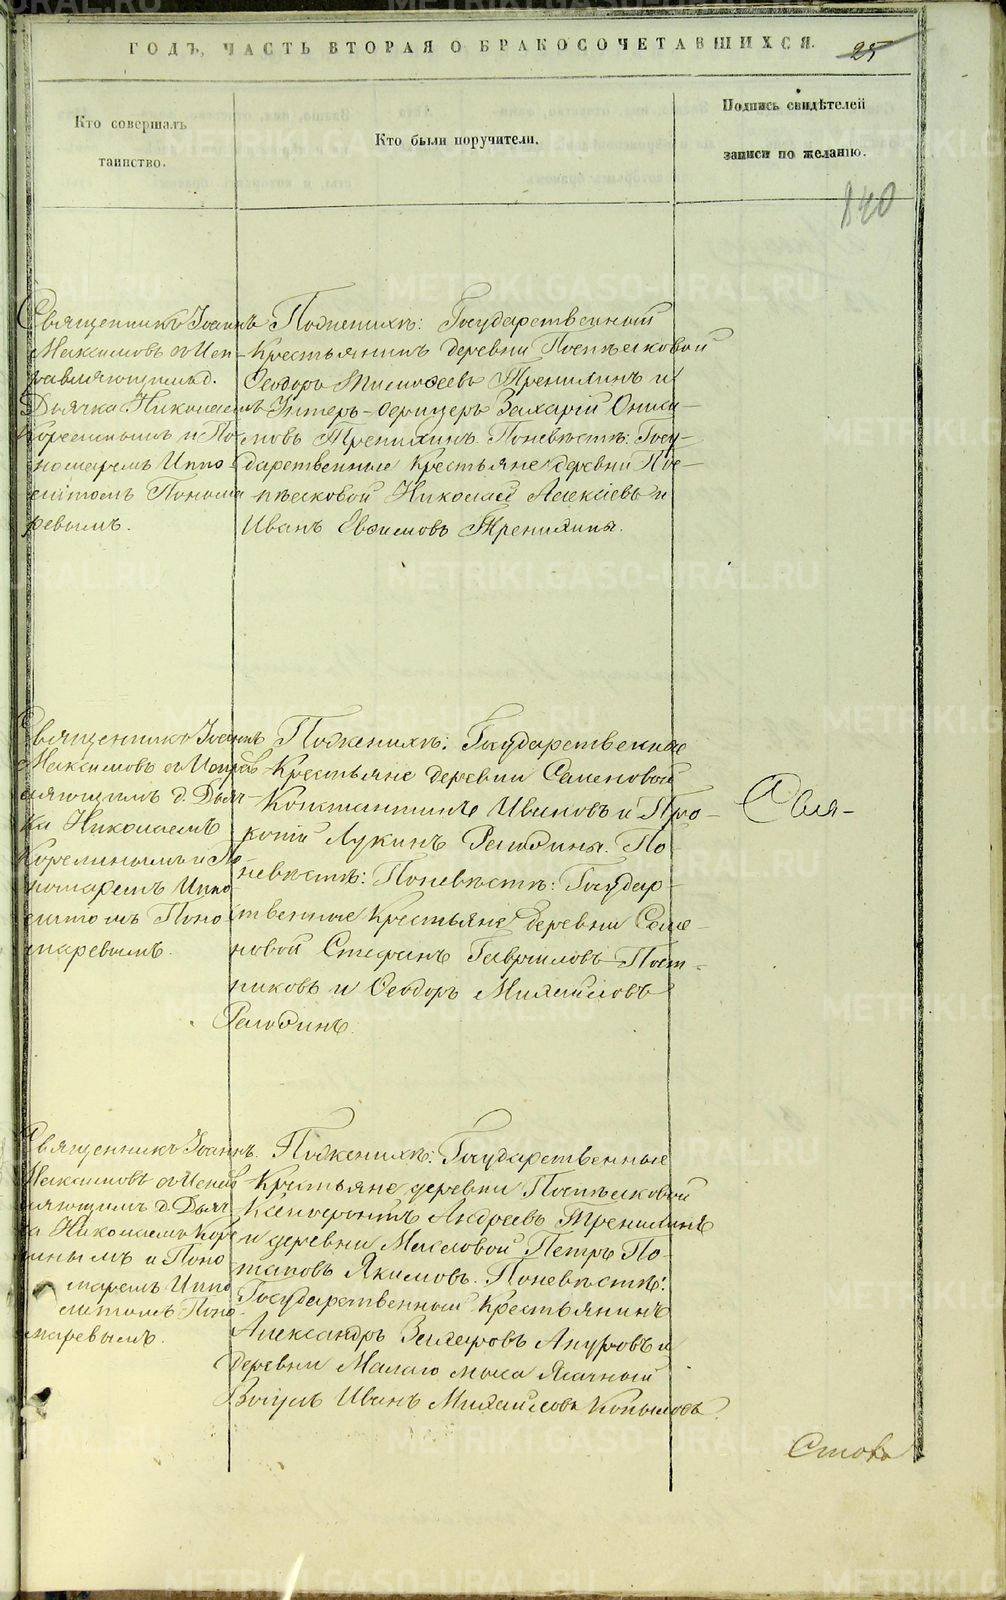 ГОДЪ, ЧАСТЬ ВТОРАЯ О БРАКОСОЧЕТАВШИХСЯ.
25
Кто совершалъ
таинство.
Кто были поручители.
Подпись свидѣтелей
записи по желанію.
840
Священникъ Іоаннъ
Максимовъ съ Исп-
равляющимъ д.
Дьячка Николаемъ
Корелинымъ и По-
номаремъ Иппо-
литомъ Понома
ревымъ.
Поженихѣ: Государственный
Крестьянинъ деревни Поспѣлковой
Ѳеодоръ Тимоѳеевъ Тренихинъ и
Унтеръ-офицеръ Захарій Оники-
мовъ Тренихинъ. Поневѣстѣ: Госу-
дарственные Крестьяне деревни Пос-
пѣлковой Николай Алексіевъ и
Иванъ Евѳимовъ Тренихины.
Священникъ Іоаннъ
Максимовъ съ Исправ
ляющимъ д. Дьяч-
ка Николаемъ
Корелинымъ и По-
номаремъ Иппо-
литомъ Поно
маревымъ.
Поженихѣ: Государственные
Крестьяне деревни Семеновой
Константинъ Ивановъ и Про-
копій Лукинъ По
невѣстѣ: Поневѣстѣ: Государ-
ственные Крестьяне деревни Семе-
новой Стефанъ Гавриловъ Пост-
никовъ и Ѳеодоръ Михайловъ
Свя-
Священникъ Іоаннъ
Максимовъ съ Исправ
ляющимъ д. Дьяч
ка Николаемъ Коре
линымъ и Поно
маремъ Иппо
литомъ Поно-
маревымъ.
Поженихѣ: Государственные
Крестьяне деревни Поспѣлковой
Ксенофонтъ Андреевъ Тренихинъ
и деревни Макаровой Петръ По-
таповъ Якимовъ. Поневѣстѣ:
Государственный Крестьянинъ
Александръ Захаровъ и
деревни Малаго Ясачный
Вогулъ Иванъ Михайловъ Копыловъ.